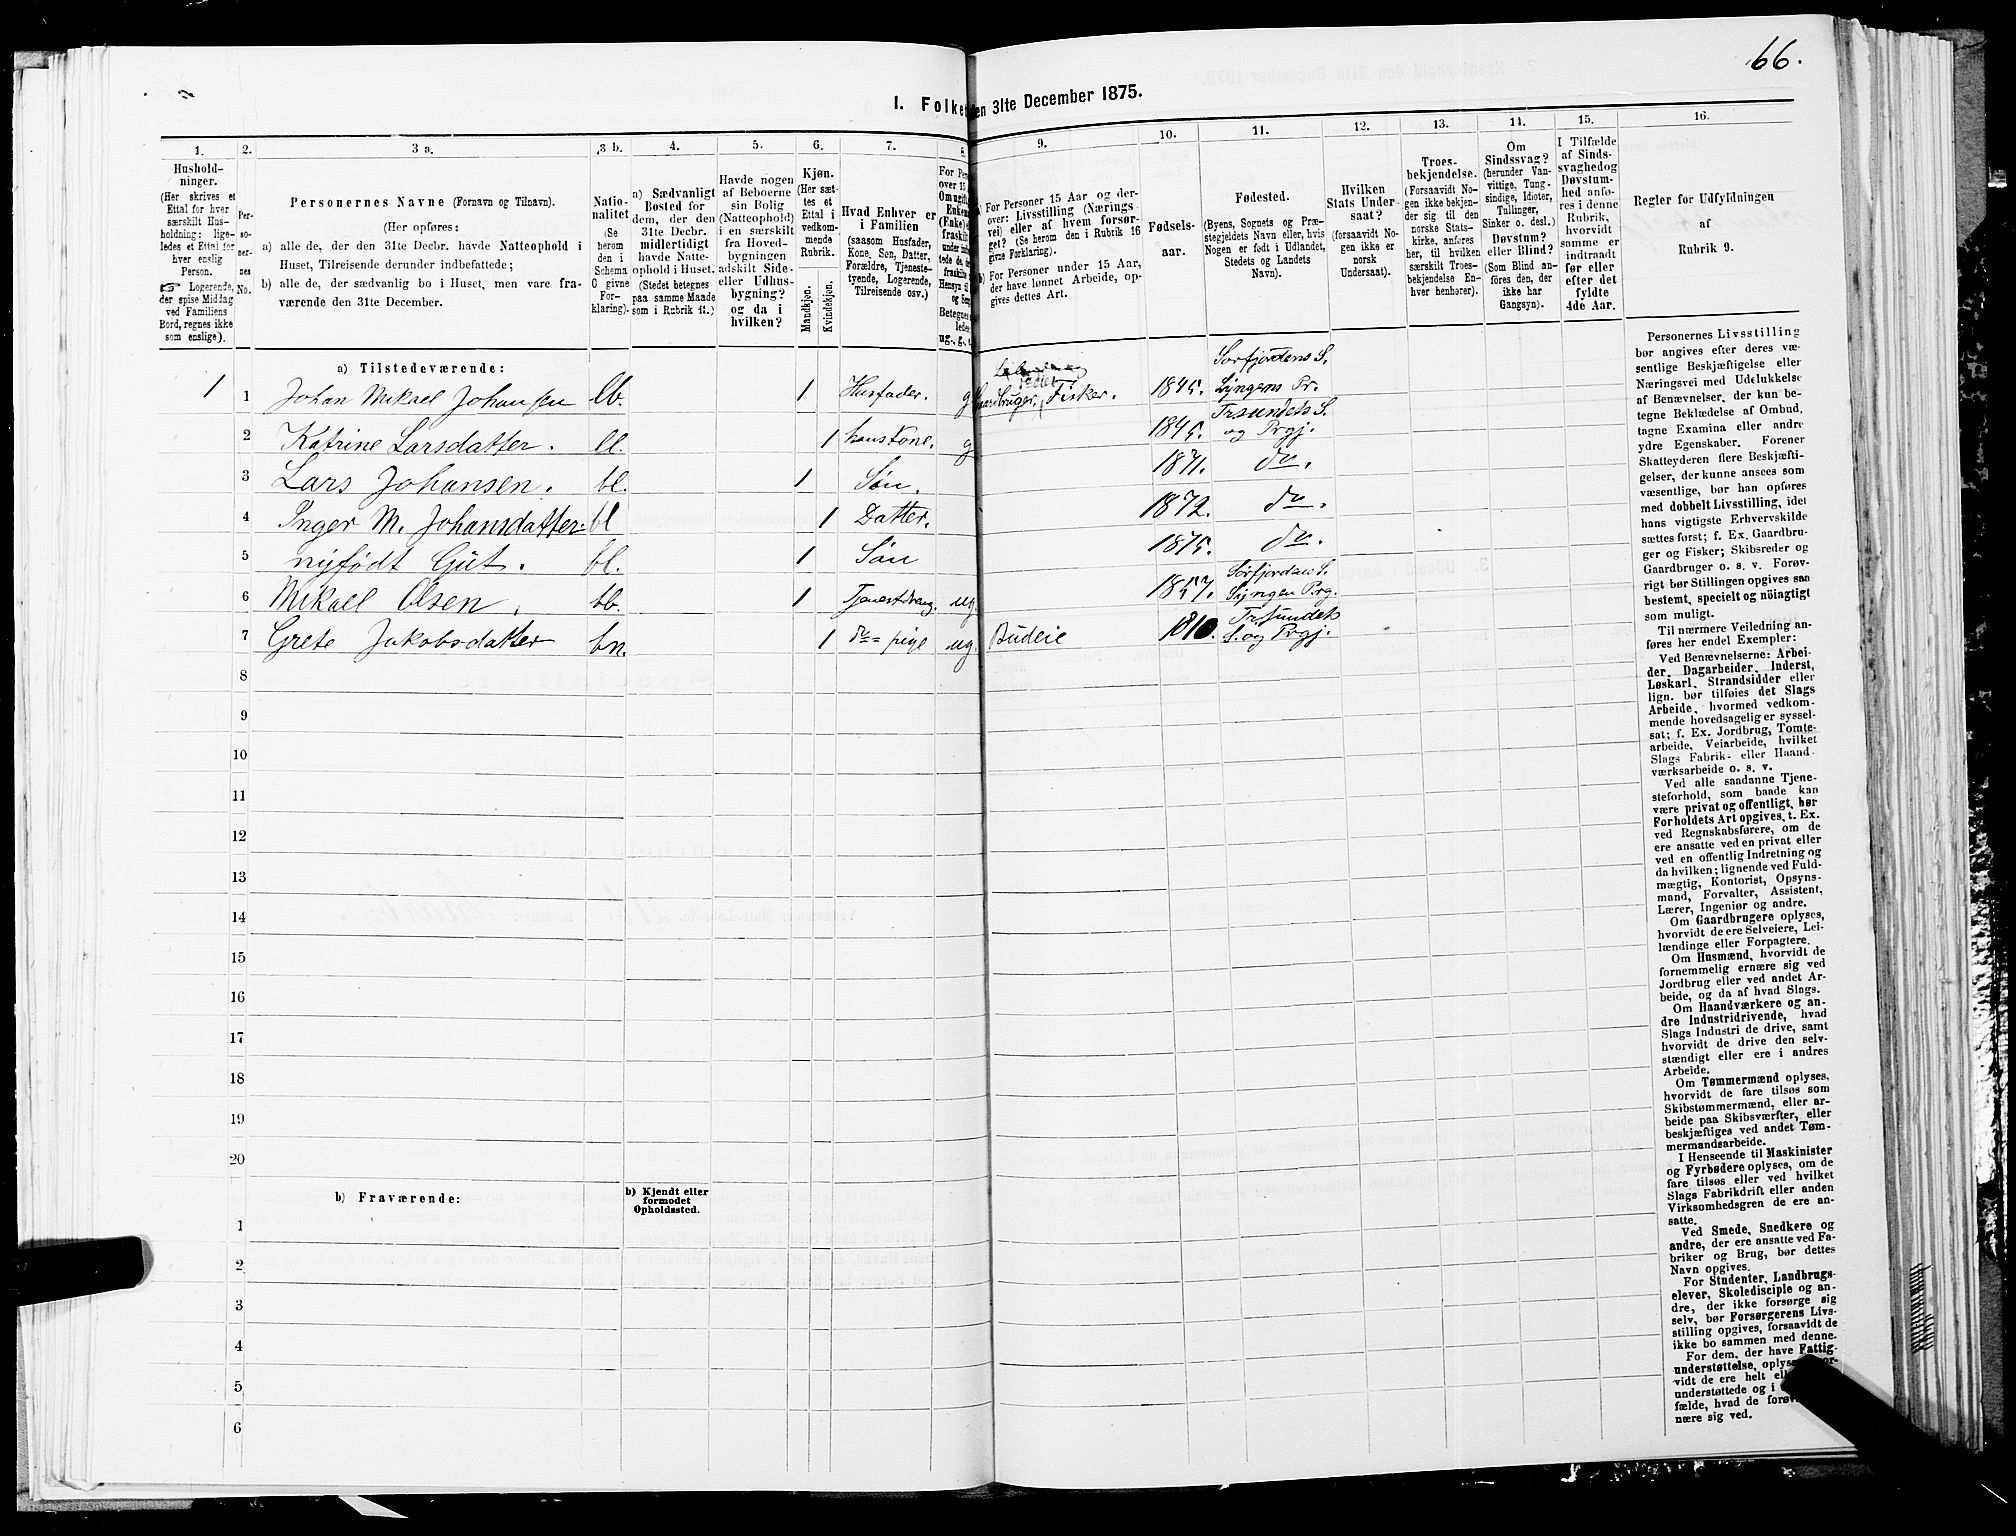 66.
I. Folket
den 31te December 1875.
1.
Hushold-
ninger.
(Her skrives et
Ettal for hver
særskilt Hus-
holdning; lige-
ledes et Ettal for
hver enslig
Person.
☞ Logerende,
der spise Middag
ved Familiens
Bord, regnes ikke
som enslige).
2.
Per-
so-
ner-
nes
No.
3 a.
Personernes Navne (Fornavn og Tilnavn).
(Her opføres:
a) alle de, der den 31te Decbr. havde Natteophold i
Huset, Tilreisende derunder indbefattede;
b) alle de, der sædvanlig bo i Huset, men vare fra-
værende den 31te December.
3 b.
Natio-
nalitet
(Se
herom
den i
Schema
C givne
For-
klaring).
4.
a) Sædvanligt
Bosted for
dem, der den
31te Decbr.
midlertidigt
havde Natte-
ophold i Huset.
(Stedet betegnes
paa samme Maade
som i Rubrik 11.)
5.
Havde nogen
af Beboerne
sin Bolig
(Natteophold)
i en særskilt
fra Hoved-
bygningen
adskilt Side-
eller Udhus-
bygning?
og da i
hvilken?
6.
Kjøn.
(Her sæt-
tes et
Ettal i
vedkom-
mende
Rubrik.
Mandkjøn.
Kvindekjøn.
7.
Hvad Enhver er
i Familien
(saasom Husfader,
Kone, Søn, Datter,
Forældre, Tjeneste-
tyende, Logerende,
Tilreisende osv.)
8.
For Pers
over 15
Omugift
Enkem
(Enke) e
fraskilt
under indb
tede de, de
fraskilte
Hensyn t
og Sen
Betegnes
lede
ug., g., e
9.
a) For Personer 15 Aar og der-
over: Livsstilling (Nærings-
vei) eller af hvem forsør-
get? (Se herom den i Rubrik 16
givne Forklaring).
b) For Personer under 15 Aar,
der have lønnet Arbeide, op-
gives dettes Art.
10.
Fødsels-
aar.
11.
Fødested.
(Byens, Sognets og Præ-
stegjeldets Navn eller, hvis
Nogen er født i Udlandet,
Stedets og Landets
Navn).
12.
Hvilken
Stats Under-
saat?
(forsaavidt No-
gen ikke er
norsk
Undersaat).
13.
Troes-
bekjendelse.
(Forsaavidt No-
gen ikke bekjen-
der sig til den
norske Stats-
kirke, anføres
her, til hvilken
særskilt Troes-
bekjendelse En-
hver henhører).
14.
Om
Sindssvag?
(herunder Van-
vittige, Tung-
sindige, Idioter,
Tullinger,
Sinker o. desl.)
Døvstum?
eller Blind?
(Som Blind an-
føres den, der
ikke har
Gangsyn).
15.
I Tilfælde
af Sinds-
svaghed og
Døvstum-
hed anfø-
res i denne
Rubrik,
hvorvidt
samme er
indtraadt
før eller
efter det
fyldte
4de Aar.
16.
Regler for Udfyldningen
af
Rubrik 9.
a) Tilstedeværende:
1 1 Johan Mikael Johansen lb. 1 Husfader. g Gaardbruger, Fisker. 1845. Sorfjordens S. Lyngens Pr.
2 Katrine Larsdatter. bl. 1 hans Kone. g 1845. Trsundets S. og Prgj.
3 Lars Johansen. bl. 1 Søn. 1871. do.
4 Inger M. Johansdatter. bl 1 Datter. 1872. do.
5 nyfødt Gut. bl. 1 Søn 1875. do.
6 Mikael Olsen. bb. 1 Tjenestdreng. ug. 1857. Sørfjordens S. Lyngen Prg.
7 Grete Jakobsdatter bn. 1 do= pige ug. Budeie 1810. Trsundets S. og Prgj.
8
9
10
11
12
13
14
15
16
17
18
19
20
b) Fraværende:
b) Kjendt eller
formodet
Opholdssted.
1
2
3
4
5
6
Personernes Livsstilling
bør angives efter deres væ-
sentlige Beskjæftigelse eller
Næringsvei med Udelukkelse
af Benævnelser, der kun be-
tegne Beklædelse af Ombud,
tagne Examina eller andre
ydre Egenskaber. Forener
Skatteyderen flere Beskjæfti-
gelser, der kunne ansees som
væsentlige, bør han opføres
med dobbelt Livsstilling, idet
hans vigtigste Erhvervskilde
sættes først; f. Ex. Gaardbru-
ger og Fisker; Skibsreder og
Gaardbruger o. s. v. Forøv-
rigt bør Stillingen opgives saa
bestemt, specielt og nöiagtigt
som muligt.
Til nærmere Veiledning an-
føres her endel Exempler:
Ved Benævnelserne: Arbei-
der, Dagarbeider, Inderst,
Løskarl, Strandsidder eller
lign. bør tilføies det Slags
Arbeide, hvormed vedkom-
mende hovedsagelig er syssel-
sat; f. Ex. Jordbrug, Tomte-
arbeide, Veiarbeide, hvilket
Slags Fabrik- eller Haand-
værksarbeide o. s. v.
Ved alle saadanne Tjene-
steforhold, som baade kan
være privat og offentligt, bør
Forholdets Art opgives, t. Ex.
ved Regnskabsførere, om de
ere ansatte ved en privat eller
ved en offentlig Indretning og
da hvilken; lignende ved Fuld-
mægtig, Kontorist, Opsyns-
mand, Forvalter, Assistent,
Lærer, Ingeniør og andre.
Om Gaardbrugere oplyses,
hvorvidt de ere Selveiere, Lei-
lændinge eller Forpagtere.
Om Husmænd, hvorvidt de
fornemmelig ernære sig ved
Jordbrug eller ved andet Ar-
beide, og da af hvad Slags.
Om Haandværkere og an-
dre Industridrivende, hvad
Slags Industri de drive, samt
hvorvidt de drive den selv-
stændigt eller ere i andres
Arbeide.
Om Tømmermænd oplyses,
hvorvidt de fare tilsøs som
Skibstømmermænd, eller ar-
beide paa Skibsværfter, eller
beskjæftiges ved andet Tøm-
mermandsarbeide.
I Henseende til Maskinister
og Fyrbødere oplyses, om de
fare tilsøs eller ved hvilket
Slags Fabrikdrift eller anden
Virksomhedsgren de ere an-
satte.
Ved Smede, Snedkere og
andre, der ere ansatte ved Fa-
briker og Brug, bør dettes
Navn opgives.
For Studenter, Landbrugs-
elever, Skoledisciple og an-
dre, der ikke forsørge sig
selv, bør Forsørgerens Livs-
stilling opgives, forsaavidt de
ikke bo sammen med denne.
For dem, der have Fattig-
understøttelse, oplyses, hvor-
vidt de ere helt el
understøttede og i
fælde, hvad de forøv
nære sig ved.